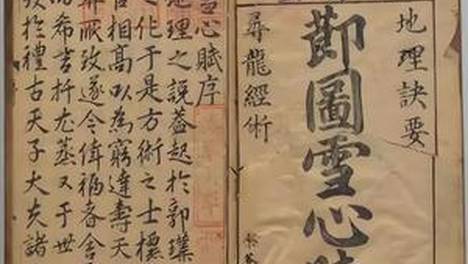 地理訣要
莭圖雪心
尋龍經術
雪心賦序
地理之說蓋起於郭璞
之化于是方術之士標
相高以為窮達壽夭
厥攷遂令倖福者舍
而希吉扦尤甚又于世
於禮古天子大夫諸